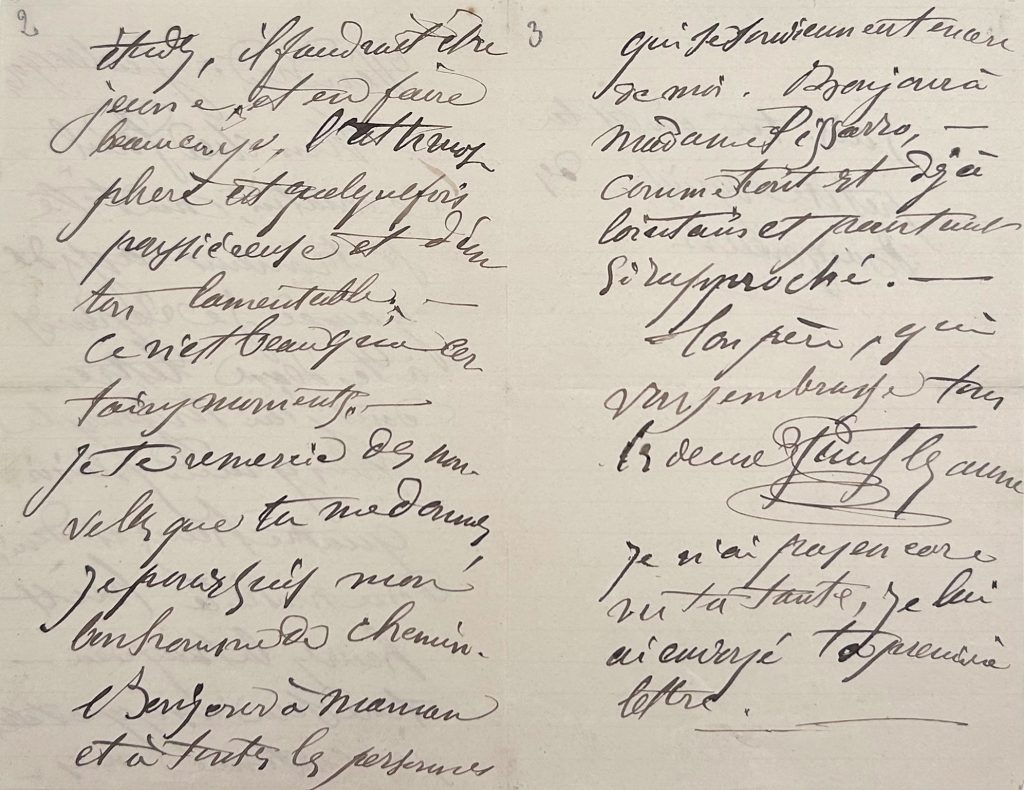 2
études, il faudrait être
jeune, et en faire
beaucoup. L'athmos
phère est quelquefois
poussiéreuse et d'un
ton lamentable. —
Ce n'est beau qu'à cer
tains moments. —
Je te remercie des nou-
velles que tu me donnes
je poursuis mon
bonhomme de chemin.
Bonjour à maman
et à toutes les personnes
3
qui se souviennent encore
de moi. Bonjour à
madame Pissarro, —
comme tout est déjà
lointain et pourtant
si rapproché. —
Ton père, qui
vous embrasse tous
les deux Paul Cezanne
je n'ai pas encore
vu ta tante, je lui
ai envoyé ta première
lettre.